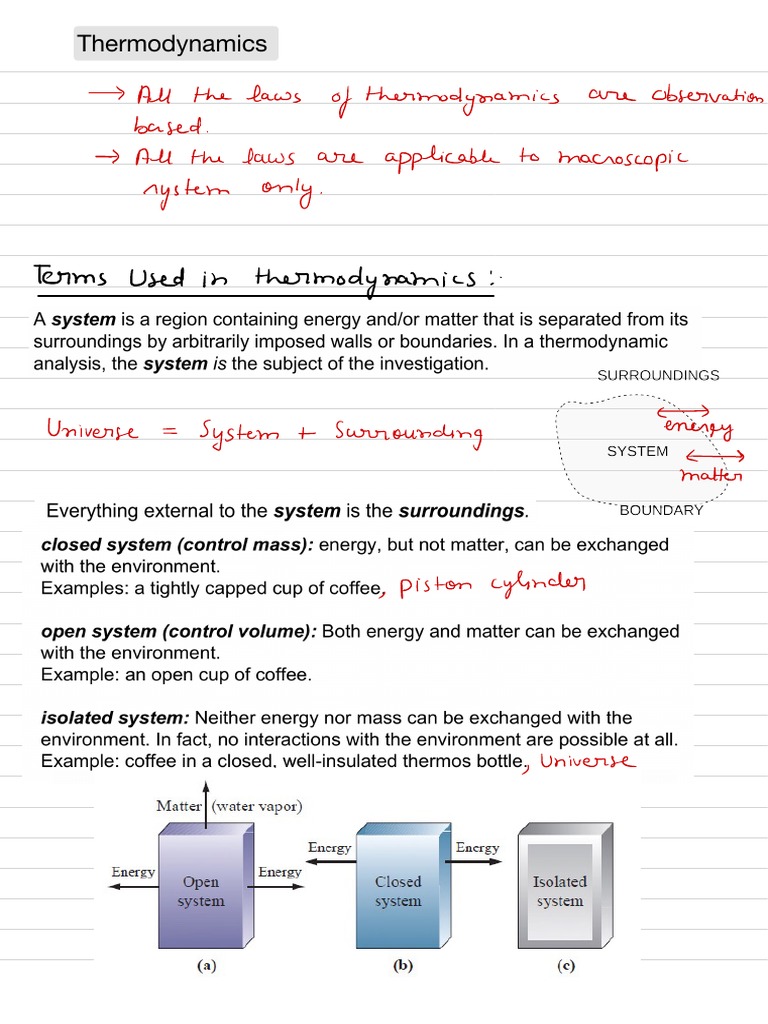 Thermodynamics
→ All the laws of thermodynamics are observation
based.
→ All the laws are applicable to macroscopic
system only.
Terms Used in thermodynamics:-
A system is a region containing energy and/or matter that is separated from its
surroundings by arbitrarily imposed walls or boundaries. In a thermodynamic
analysis, the system is the subject of the investigation.
SURROUNDINGS
energy
SYSTEM
matter
BOUNDARY
Universe = System + Surrounding
Everything external to the system is the surroundings.
closed system (control mass): energy, but not matter, can be exchanged
with the environment.
Examples: a tightly capped cup of coffee, piston cylinder
open system (control volume): Both energy and matter can be exchanged
with the environment.
Example: an open cup of coffee.
isolated system: Neither energy nor mass can be exchanged with the
environment. In fact, no interactions with the environment are possible at all.
Example: coffee in a closed, well-insulated thermos bottle, Universe
Matter (water vapor)
Energy
Energy
Open
system
(a)
Energy
Energy
Closed
system
(b)
Isolated
system
(c)